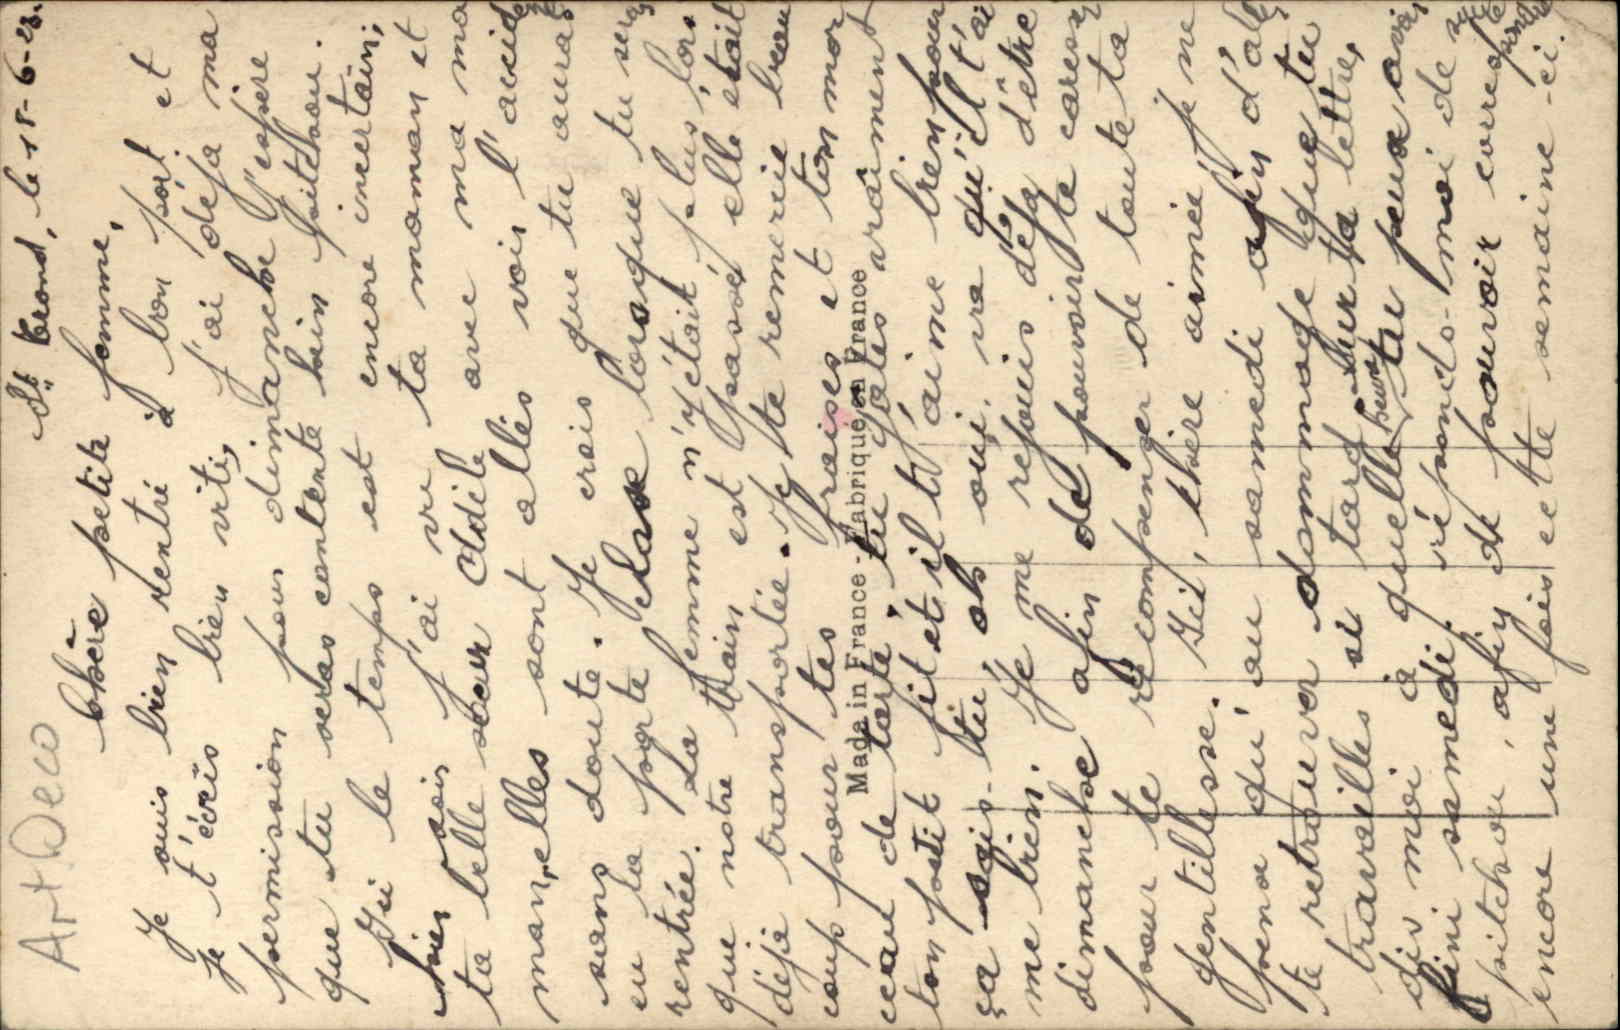 Art Deco
St Brond, le 18-6-28.
Chère petite femme,
Je suis bien rentré à bon port et
je t'écris bien vite, j'ai déjà ma
permission pour dimanche j'espère
que tu seras contente hein pitchou.
Ici le temps est encore incertain,
hier soir j'ai vu ta maman et
ta belle sœur Odile avec ma ma
man, elles sont allés voir l'accid
sans doute. Je crois que tu auras
eu la porte close lorsque tu seras
rentrée. La femme n'y était plus, lors
que notre train est passé elle était
déjà transportée. Je te remercie beau
coup pour tes fraises et ton mor
ceau de tarte, tu gâtes vraiment
ton petit fit et il t'aime bien pour
ça sais-tu, oh oui, va qu'il t'ai
me bien. Je me rejouis déjà d'être
dimanche afin de pouvoir te caresser
pour te récompenser de toute ta
gentillesse. Ici, chère aimée, je ne
pense qu'au samedi afin d'aller
te retrouver dommage que tu
travailles si tard sur ta lettre,
dis moi à quelle heure tu peux avoir
fini samedi. réponds-moi de suite
pitchou, afin de pouvoir correspondre
encore une fois cette semaine-ci.
Made in France - Fabriqué en France